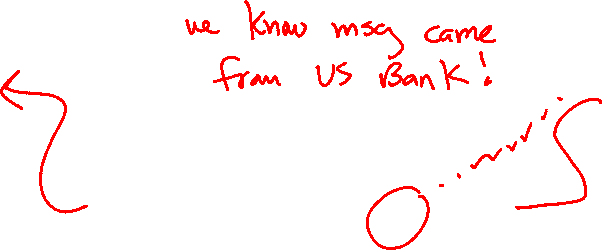 we know msg came
from US Bank!